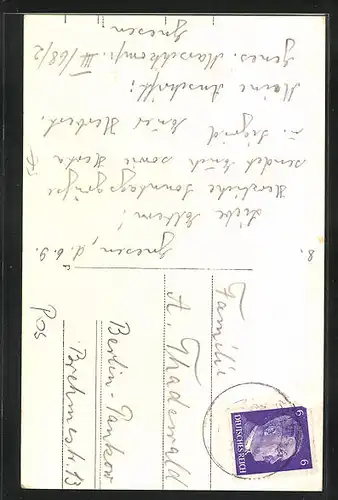 8. Gnesen, d. 6.9.
Liebe Eltern!
Herzliche Sonntagsgrüße
sendet Euch sowie Herta
u. Sigrid Euer Herbert.
Meine Anschrift:
Genes. Marschkomp. III/68/2
Gnesen.
Familie
A. Thadewald
Berlin-Pankow
Brehmestr. 13
Pos
6 DEUTSCHES REICH 6